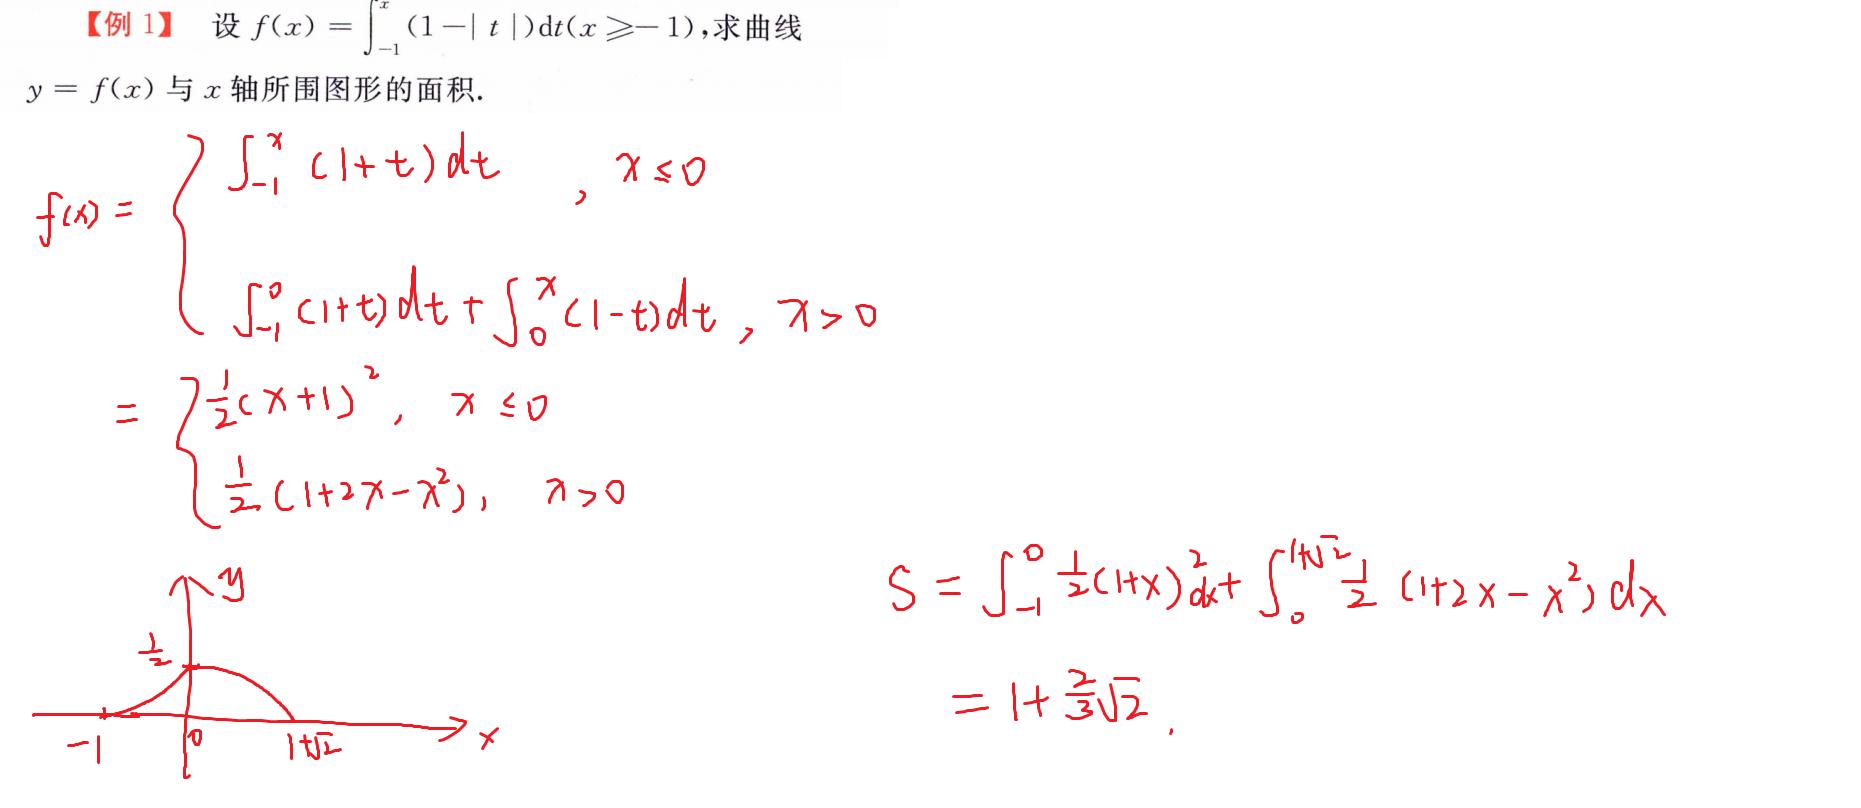 【例 1】 设 f(x) = ∫_{-1}^{x} (1-| t |)dt(x ⩾-1),求曲线
y = f(x) 与 x 轴所围图形的面积.
f(x) = { ∫_{-1}^{x} (1+t)dt , x ≤ 0
∫_{-1}^{0} (1+t)dt + ∫_{0}^{x} (1-t)dt , x > 0
= { 1/2 (x+1)^2 , x ≤ 0
1/2 (1+2x-x^2) , x > 0
y
1/2
-1 0 1+√2 x
S = ∫_{-1}^{0} 1/2 (1+x)^2 dx + ∫_{0}^{1+√2} 1/2 (1+2x-x^2) dx
= 1 + 2/3 √2 .